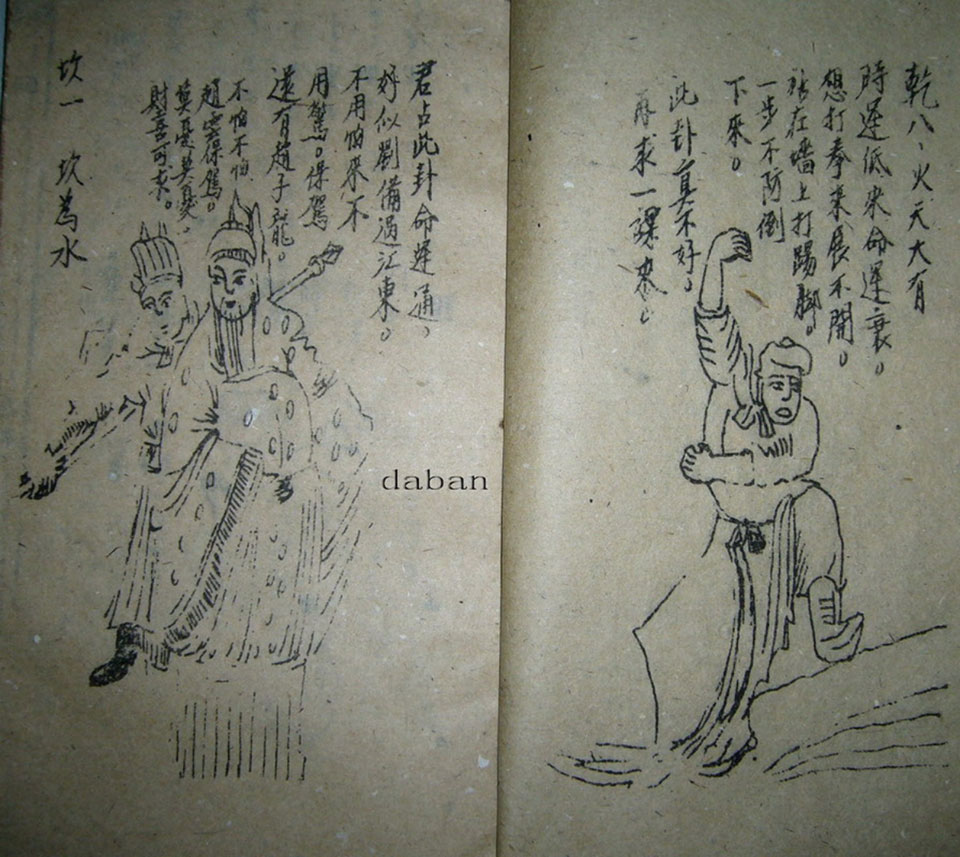 乾八、火天大有
時運低來命運衰。
想打拳來展不開。
站在墻上打踢脚。
一步不阿倒
下來。
此卦真不好。
再求一課來。
君占此卦命運通。
好似劉備過江東。
不用怕來不
用驚。保駕
還有趙子龍。
不怕不怕
趙雲保駕。
莫憂莫憂、
財喜可求。
坎一 坎為水
daban